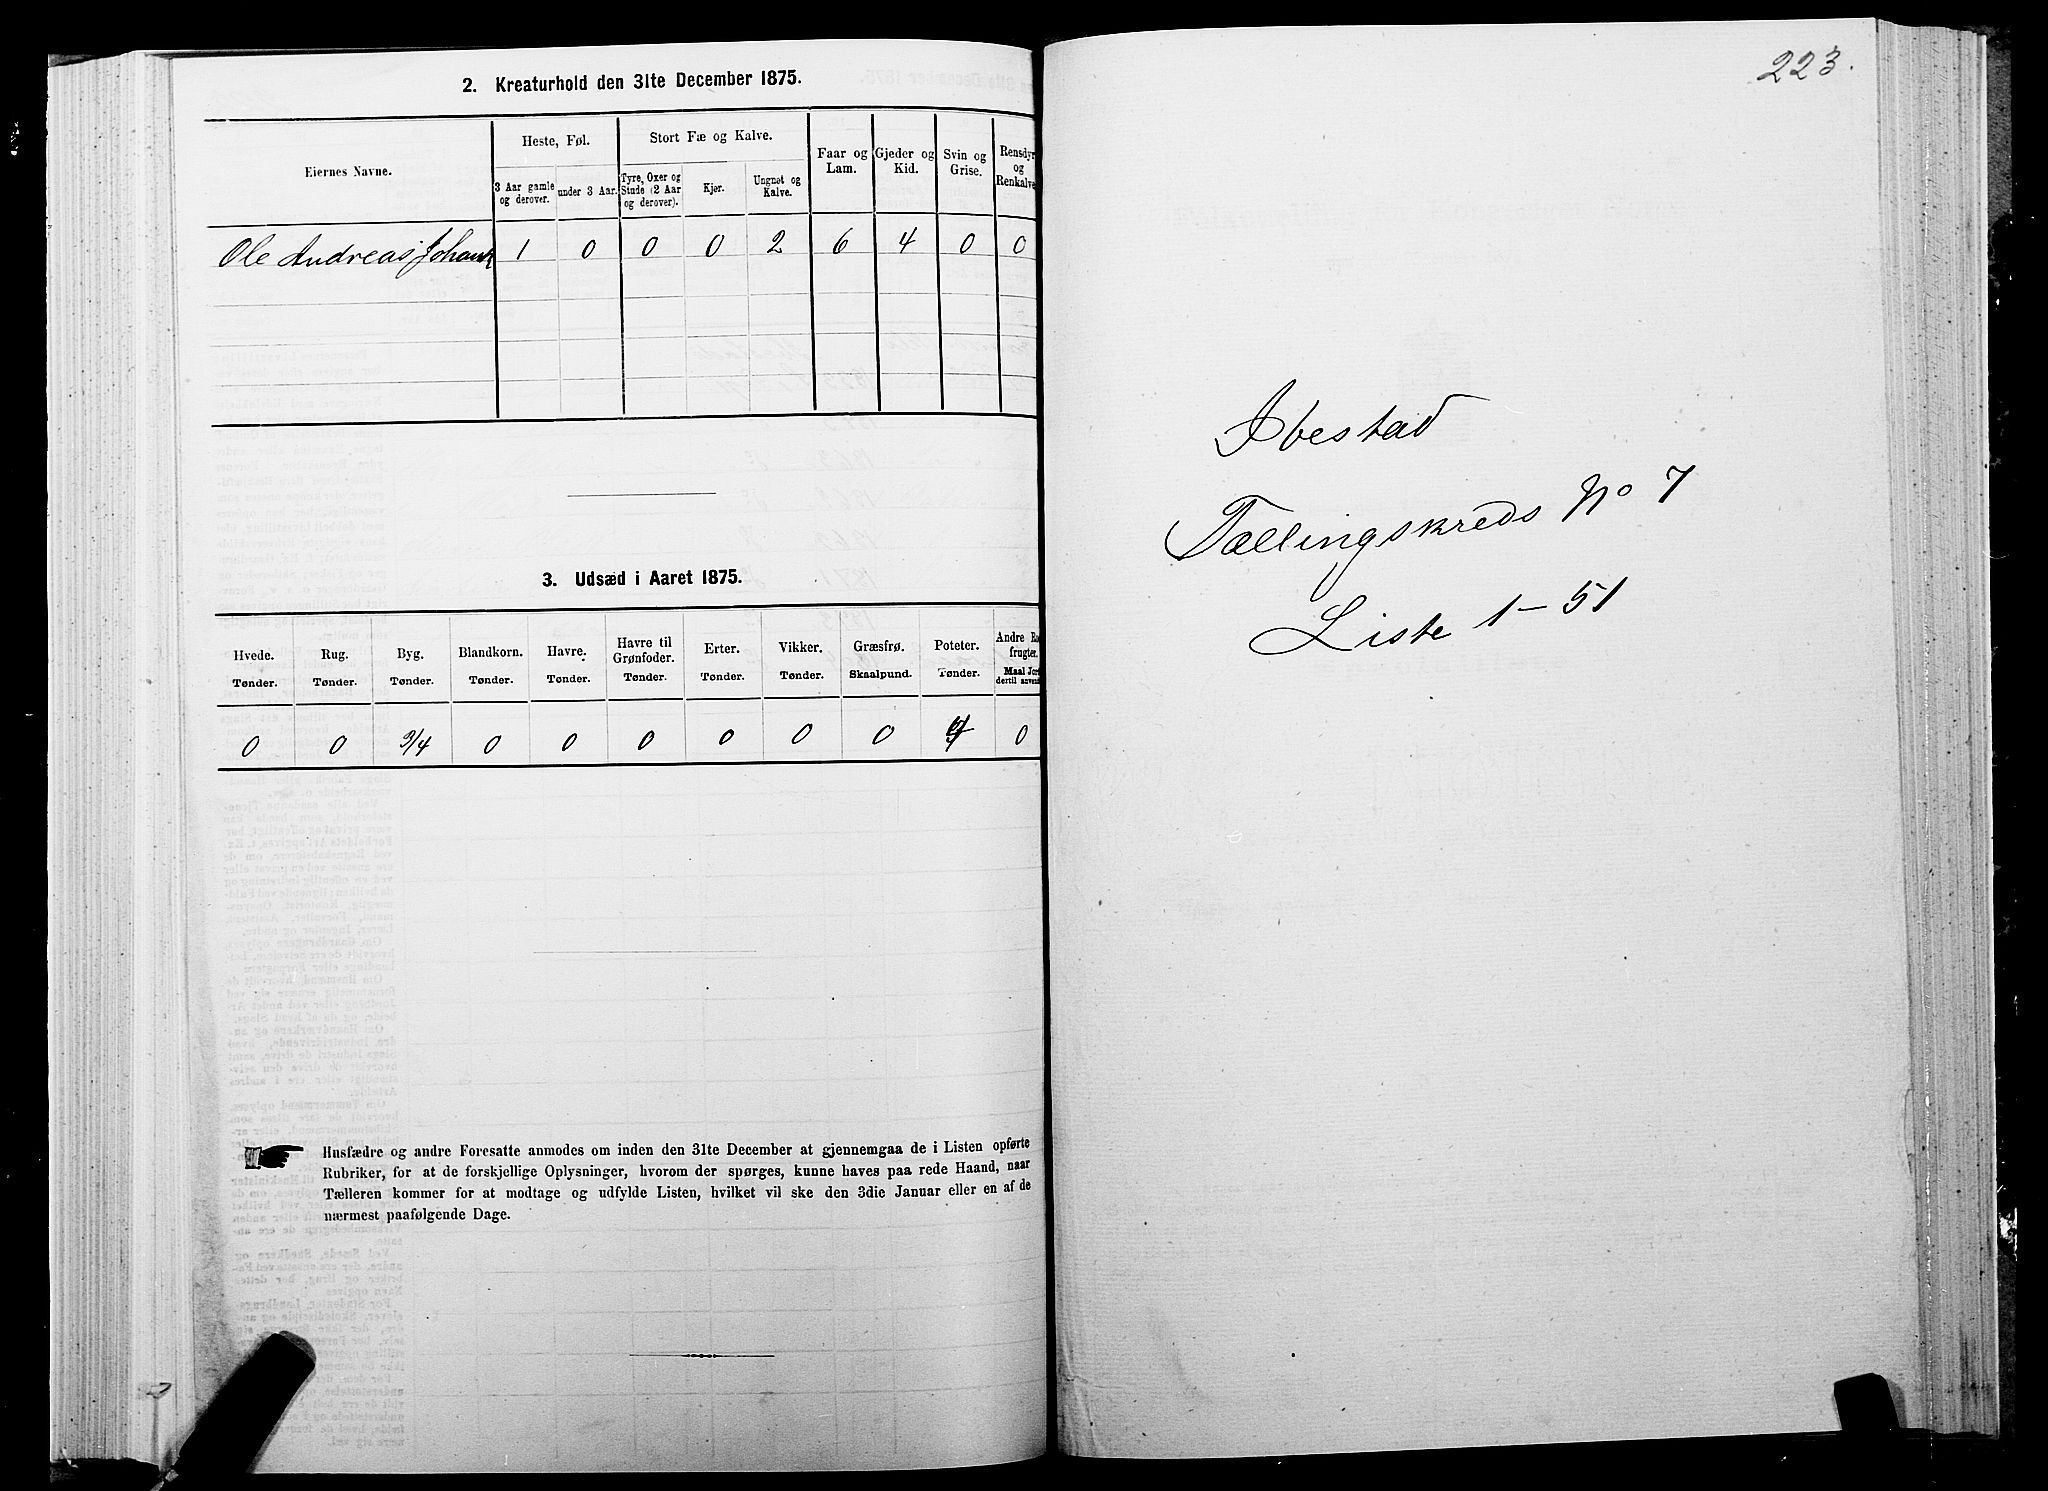 2. Kreaturhold den 31te December 1875.
Eiernes Navne.
Heste, Føl.
Stort Fæ og Kalve.
Faar og Lam.
Gjeder og Kid.
Svin og Grise.
Rensdyr og Renkalve
3 Aar gamle og derover.
under 3 Aar.
Tyre, Oxer og Stude (2 Aar og derover).
Kjør.
Ungnøt og Kalve.
Ole Andreas 1 0 0 0 2 6 4 0 0
3. Udsæd i Aaret 1875.
Hvede. Rug. Byg. Blandkorn. Havre. Havre til Grønfoder. Erter. Vikker. Græsfrø. Poteter. Andre frugter.
Tønder. Tønder. Tønder. Tønder. Tønder. Tønder. Tønder. Tønder. Skaalpund. Tønder. Maal dertil
0 0 3/4 0 0 0 0 0 0 0
Husfædre og andre Foresatte anmodes om inden den 31te December at gjennemgaa de i Listen opførte
Rubriker, for at de forskjellige Oplysninger, hvorom der spørges, kunne haves paa rede Haand, naar
Tælleren kommer for at modtage og udfylde Listen, hvilket vil ske den 3die Januar eller en af de
nærmest paafølgende Dage.
223.
Ibestad
Tællingskreds No 7
Liste 1-51